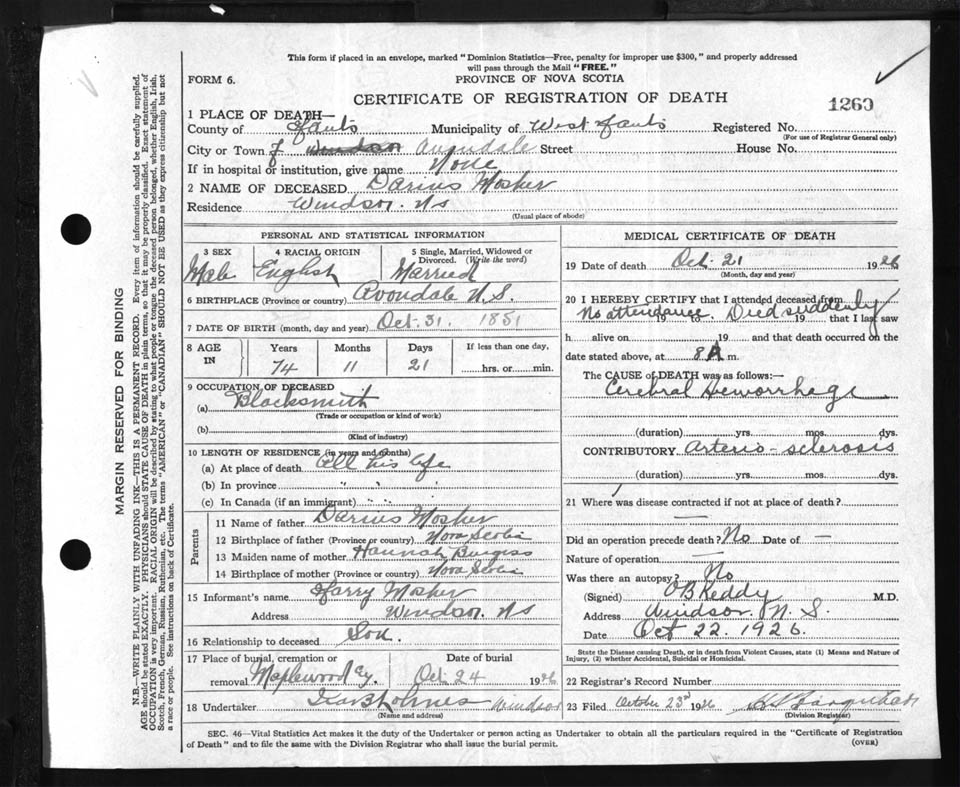 This form if placed in an envelope, marked "Dominion Statistics—Free, penalty for improper use $300," and properly addressed
will pass through the Mail "FREE."
FORM 6.
PROVINCE OF NOVA SCOTIA
CERTIFICATE OF REGISTRATION OF DEATH
1260
1 PLACE OF DEATH—
County of Hants Municipality of West Hants Registered No.
(For use of Registrar General only)
City or Town of Windsor Avondale Street House No.
If in hospital or institution, give name None
2 NAME OF DECEASED Darius Mosher
Residence Windsor. NS
(Usual place of abode)
PERSONAL AND STATISTICAL INFORMATION
3 SEX 4 RACIAL ORIGIN 5 Single, Married, Widowed or Divorced. (Write the word)
Male English Married
6 BIRTHPLACE (Province or country) Avondale N.S.
7 DATE OF BIRTH (month, day and year) Oct. 31. 1851
8 AGE IN Years Months Days If less than one day,
74 11 21 hrs. or min.
9 OCCUPATION OF DECEASED
(a) Blacksmith
(Trade or occupation or kind of work)
(b)
(Kind of industry)
10 LENGTH OF RESIDENCE (in years and months)
(a) At place of death All his life
(b) In province " " "
(c) In Canada (if an immigrant) " " "
Parents
11 Name of father Darius Mosher
12 Birthplace of father (Province or country) Nova Scotia
13 Maiden name of mother Hannah Burgess
14 Birthplace of mother (Province or country) Nova Scotia
15 Informant's name Harry Mosher
Address Windsor. NS
16 Relationship to deceased Son.
17 Place of burial, cremation or removal Maplewood Cy. Date of burial Oct. 24 1926
18 Undertaker Holmes Windsor
(Name and address)
MEDICAL CERTIFICATE OF DEATH
19 Date of death Oct. 21 1926
(Month, day and year)
20 I HEREBY CERTIFY that I attended deceased from
No attendance. 19 to Died suddenly 19 that I last saw
h alive on 19 and that death occurred on the
date stated above, at 8 A m.
The CAUSE of DEATH was as follows:—
Cerebral Hemorrhage
(duration) yrs. mos. dys.
CONTRIBUTORY Arterio-sclerosis
(duration) yrs. mos. dys.
21 Where was disease contracted if not at place of death?
—
Did an operation precede death? No Date of —
Nature of operation —
Was there an autopsy? No
(Signed) O B Keddy M.D.
Address Windsor. N. S.
Date Oct 22. 1926.
State the Disease causing Death, or in death from Violent Causes, state (1) Means and Nature of
Injury, (2) whether Accidental, Suicidal or Homicidal.
22 Registrar's Record Number
23 Filed October 23rd 1926
(Division Registrar)
SEC. 46—Vital Statistics Act makes it the duty of the Undertaker or person acting as Undertaker to obtain all the particulars required in the "Certificate of Registration
of Death" and to file the same with the Division Registrar who shall issue the burial permit.
(OVER)
MARGIN RESERVED FOR BINDING
N.B.—WRITE PLAINLY WITH UNFADING INK—THIS IS A PERMANENT RECORD. Every item of information should be carefully supplied.
AGE should be stated EXACTLY. PHYSICIANS should STATE CAUSE OF DEATH in plain terms, so that it may be properly classified. Exact statement of
OCCUPATION is very important. RACIAL ORIGIN will be described by stating to what people or tongue the deceased person belonged, whether English, Irish,
Scotch, French, German, Russian, Ruthenian, etc. The terms "AMERICAN" or "CANADIAN" SHOULD NOT BE USED as they express citizenship but not
a race or people. See instructions on back of Certificate.